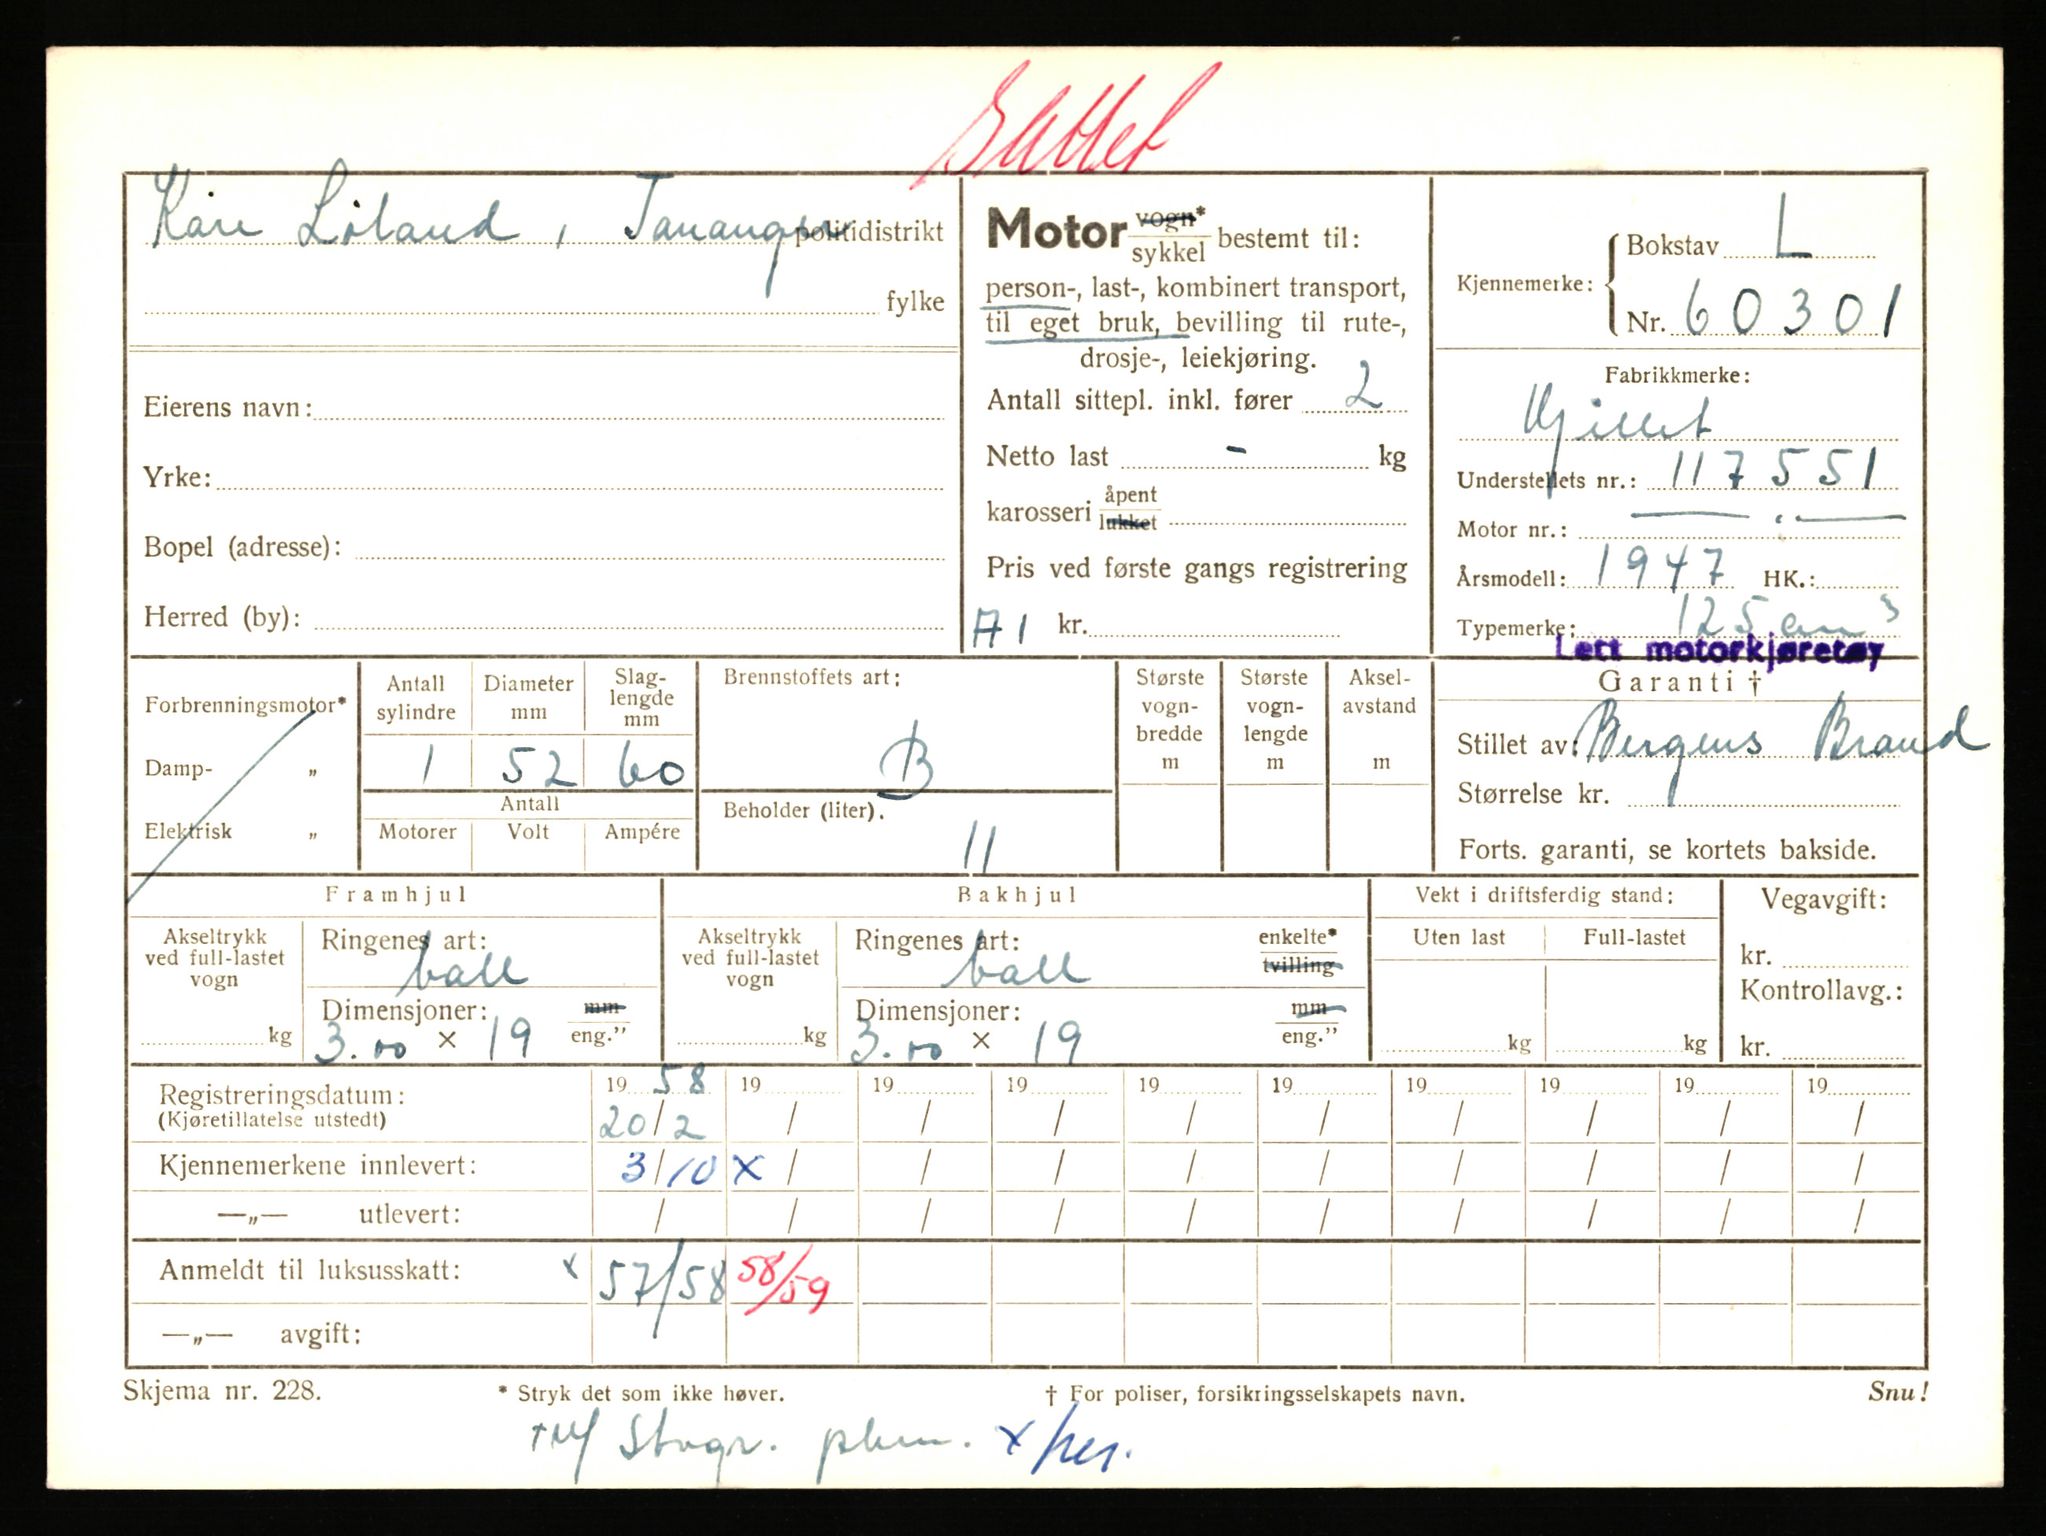 Slettet
Kåre Løland, Tananger politidistrikt
fylke
Eierens navn:
Yrke:
Bopel (adresse):
Herred (by):
Motor vogn* sykkel bestemt til:
person-, last-, kombinert transport,
til eget bruk, bevilling til rute-,
drosje-, leiekjøring.
Antall sittepl. inkl. fører 2
Netto last - kg
karosseri åpent lukket
Pris ved første gangs registrering
A1 kr.
Kjennemerke: Bokstav L
Nr. 60301
Fabrikkmerke:
Gillet
Understellets nr.: 117551
Motor nr.: — " —
Årsmodell: 1947 HK.:
Typemerke: 125 cm³
Lett motorkjøretøy
Forbrenningsmotor*
Damp- „
Elektrisk „
Antall sylindre Diameter mm Slaglengde mm
1 52 60
Antall
Motorer Volt Ampére
Brennstoffets art:
B
Beholder (liter).
11
Største vogn-bredde m
Største vogn-lengde m
Aksel-avstand m
Garanti †
Stillet av: Bergens Brand
Størrelse kr.
Forts. garanti, se kortets bakside.
Framhjul
Akseltrykk ved full-lastet vogn
kg
Ringenes art:
ball
Dimensjoner: mm
3.00 × 19 eng.”
Bakhjul
Akseltrykk ved full-lastet vogn
kg
Ringenes art: enkelte*
ball tvilling
Dimensjoner: mm
3.00 × 19 eng.”
Vekt i driftsferdig stand:
Uten last Full-lastet
kg kg
Vegavgift:
kr.
Kontrollavg.:
kr.
Registreringsdatum: 19 58 19 19 19 19 19 19 19 19 19
(Kjøretillatelse utstedt) 20/2 / / / / / / / / /
Kjennemerkene innlevert: 3/10 x / / / / / / / / /
—„— utlevert: / / / / / / / / / /
Anmeldt til luksusskatt: x 57/58 58/59
—„— avgift:
Skjema nr. 228. * Stryk det som ikke høver. † For poliser, forsikringsselskapets navn. Snu!
Stvgr. x